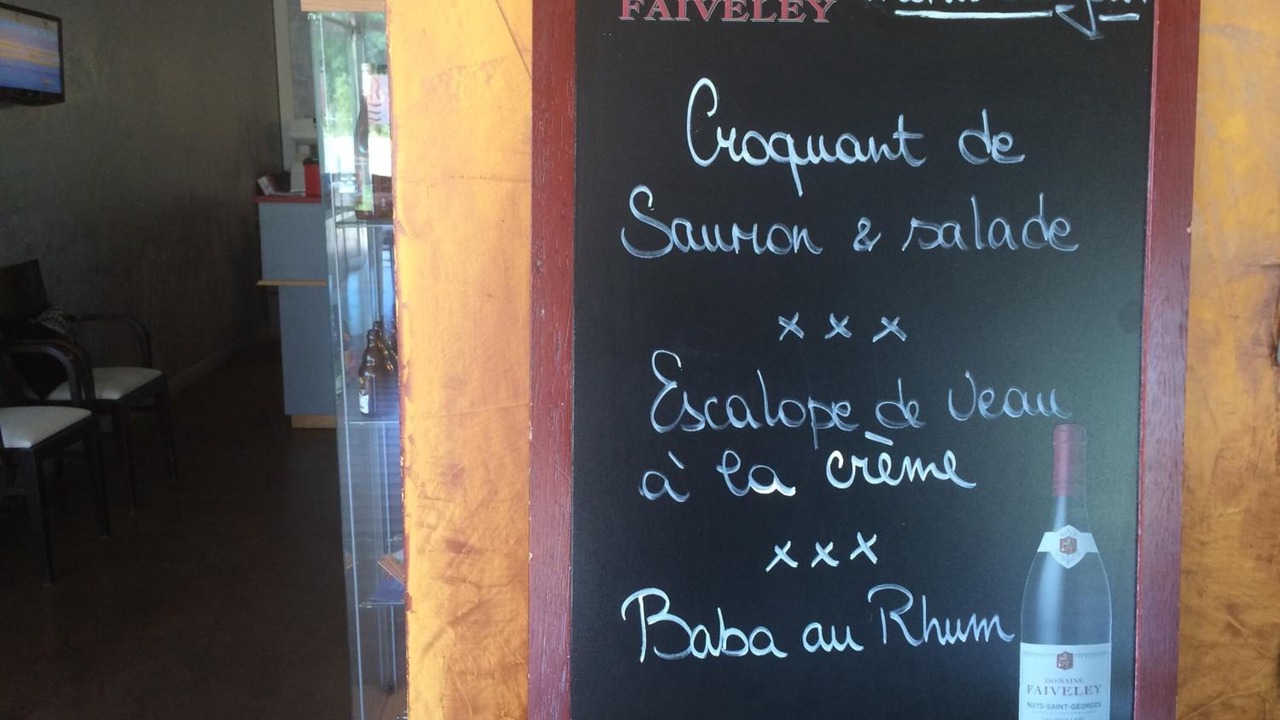 FAIVELEY
Croquant de
Saumon & salade
x x x
Escalope de veau
à la crème
x x x
Baba au Rhum
DOMAINE
FAIVELEY
NUITS-SAINT-GEORGES